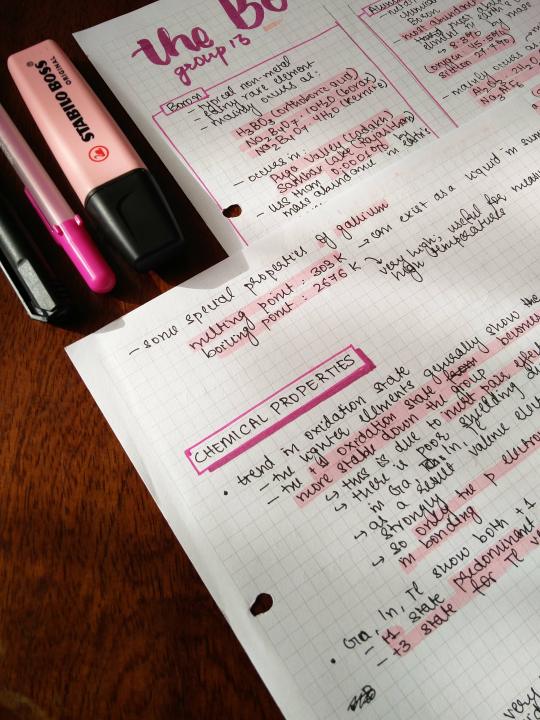 STABILO BOSS
ORIGINAL
the Bo
group 13
Boron
- typical non-metal
- fairly rare element
- mainly occurs as:
H3BO3 (orthoboric acid)
Na2B4O7 · 10H2O (borax)
Na2B4O7 · 4H2O (kernite)
- occurs in:
Puga Valley (Ladakh)
Sambhar Lake (Rajasthan)
- less than 0.0001% by
mass abundance in earth's
...
Aluminium
most abundant
- 8.3% by mass
oxygen 45.5%
silicon 27.7%
- mainly occurs as
- some special properties of gallium
melting point : 303 K → can exist as a liquid in summ
boiling point : 2676 K → very high, useful for measu
high temperatures
CHEMICAL PROPERTIES
• trend in oxidation state
- the lighter elements generally show the
- the +1 oxidation state becomes
more stable down the group
→ this is due to inert pair effect
→ there is poor shielding
in Ga, In,
→ as a result, valence elect
strongly
→ so only the p electro
in bonding
• Ga, In, Tl show both +1
- +1 state predominant
- +3 state for Tl
very